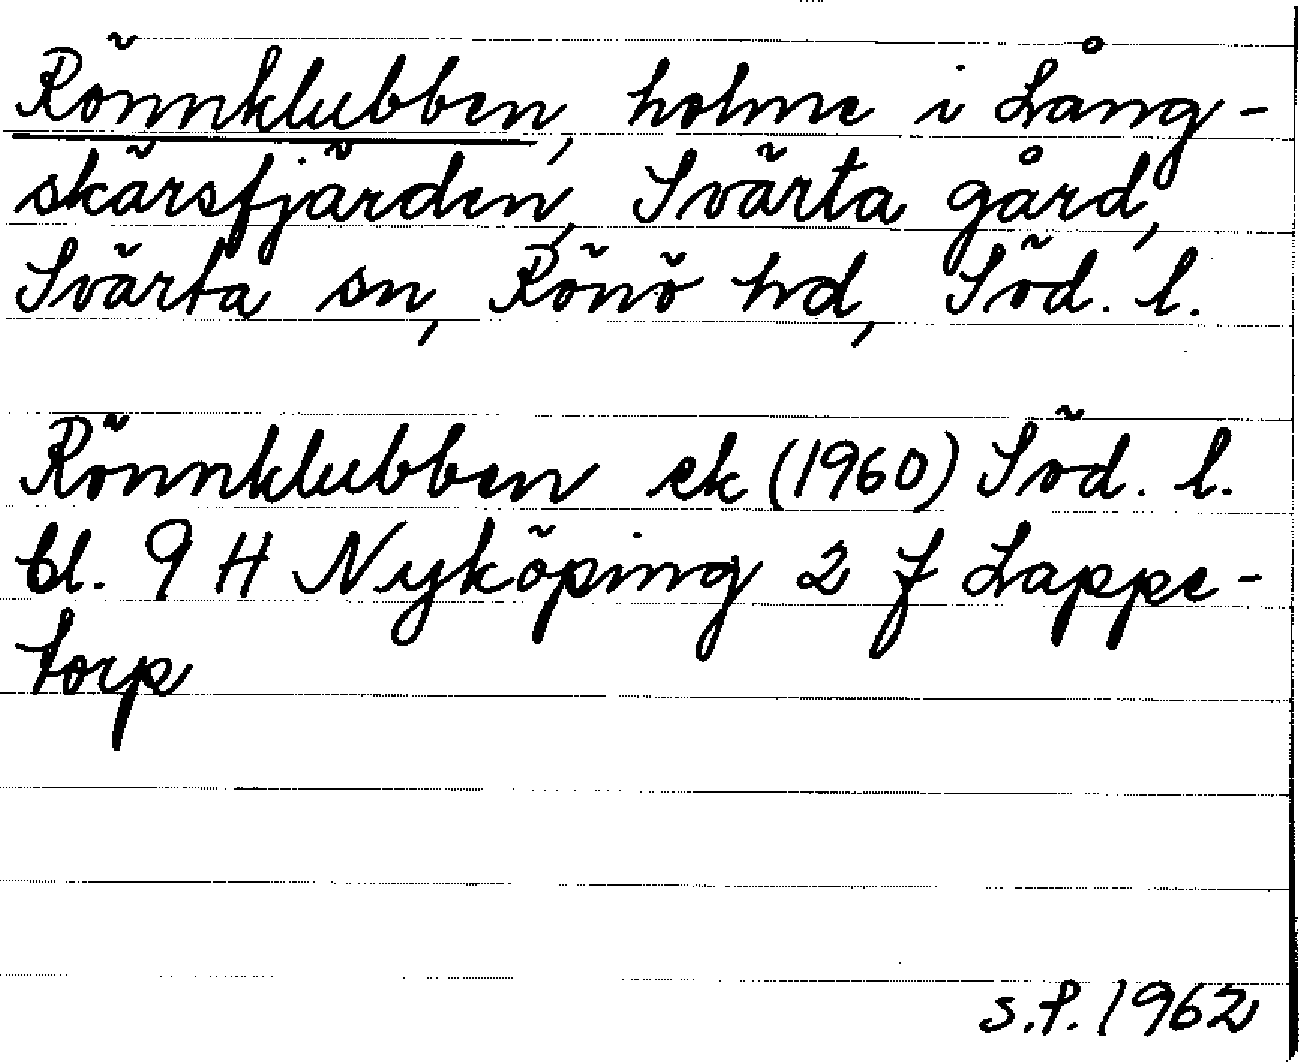 Rönnklubben, holme i Lång-
skärsfjärden, Svärta gård,
Svärta sn, Rönö hd, Söd. l.
Rönnklubben ek (1960) Söd. l.
bl. 9 H Nyköping 2 f Lappe-
torp
s.f. 1962